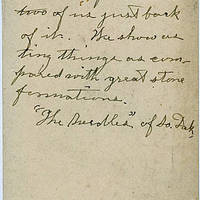 two of us just back
of it. We show as
tiny things as com-
pared with great stone
formations.
"The Needles" of So. Dak.